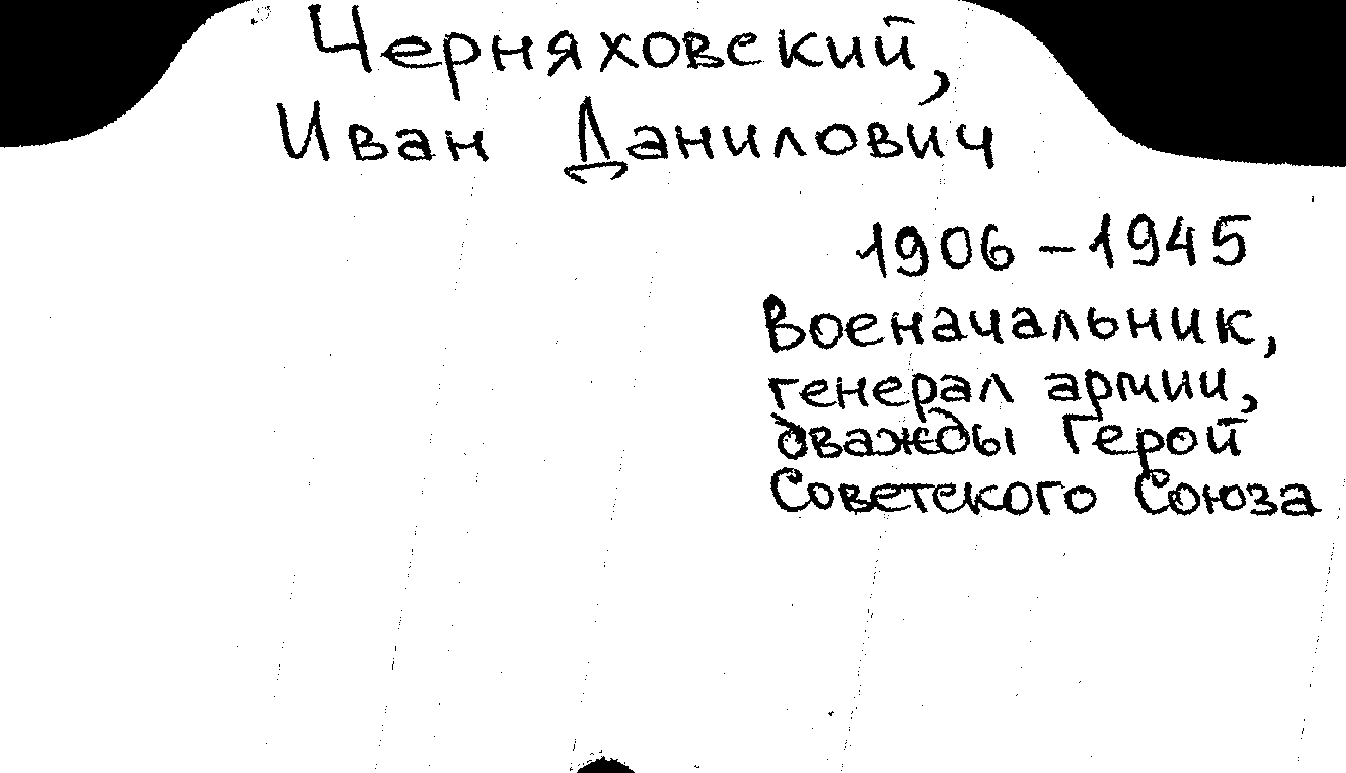 Черняховский,
Иван Данилович
1906-1945
Военачальник,
генерал армии,
дважды Герой
Советского Союза